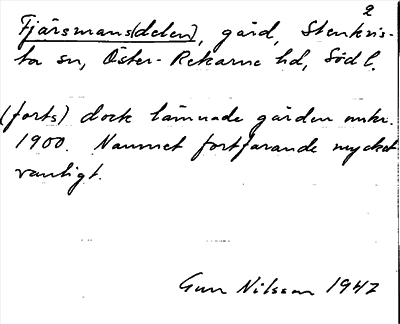 2
Fjärsmans(delen), gård, Stenkvis-
ta sn, Öster-Rekarne hd, Södl.
(forts) dock lämnade gården omkr.
1900. Namnet fortfarande mycket
vanligt.
Gun Nilsson 1947